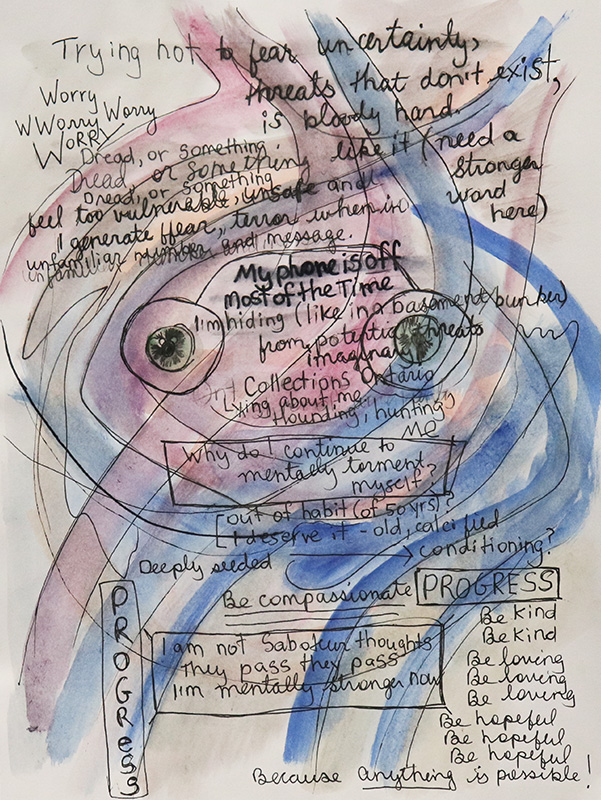 Trying not to fear uncertainty,
threats that don't exist,
is bloody hard.
Worry
WWorry Worry
WORRY
Dread, or something
Dread, or something like it (need a
Dread, or something stronger
feel too vulnerable, unsafe and word
I generate ffear, terror when in here)
unfamiliar number and message.
My phone is off
most of the Time
I'm hiding (like in a basement bunker)
from potential threats
imaginary
Collections Ontario
Lying about me
Hounding, hunting
me
Why do I continue to
mentally torment
myself?
out of habit (of 50 yrs)?
I deserve it - old, calcified
Deeply seeded conditioning?
Be compassionate PROGRESS
PROGRESS
I am not Saboteur thoughts
They pass they pass
I'm mentally stronger now
Be kind
Be kind
Be loving
Be loving
Be loving
Be hopeful
Be hopeful
Be hopeful
Because anything is possible!